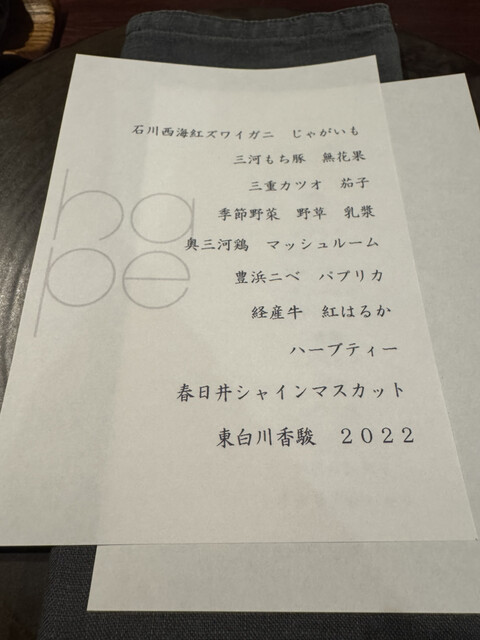 石川西海紅ズワイガニ　じゃがいも
三河もち豚　無花果
三重カツオ　茄子
季節野菜　野草　乳漿
奥三河鶏　マッシュルーム
豊浜ニベ　パプリカ
経産牛　紅はるか
ハーブティー
春日井シャインマスカット
東白川香駿　２０２２
ha
pe